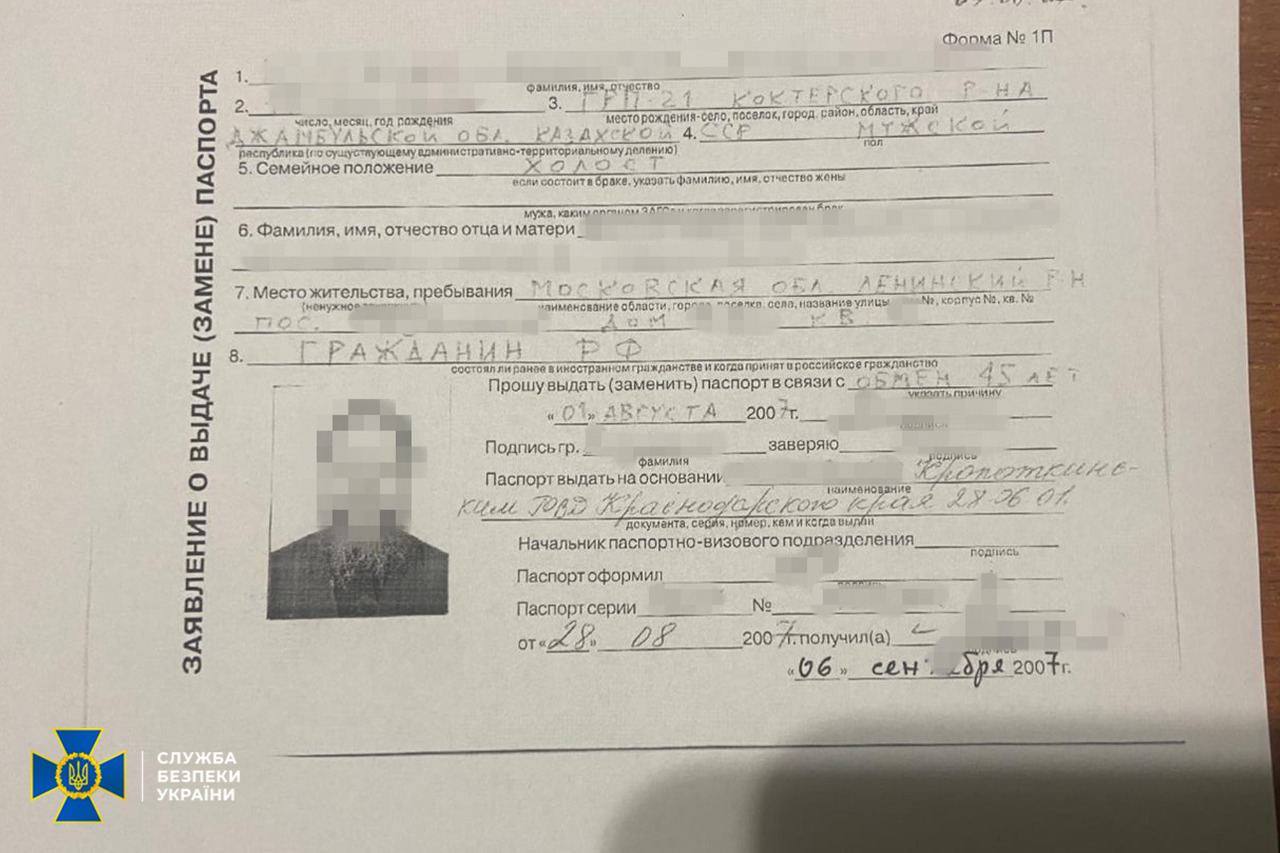 Форма № 1П
ЗАЯВЛЕНИЕ О ВЫДАЧЕ (ЗАМЕНЕ) ПАСПОРТА
1.
фамилия, имя, отчество
2. 3. ГРП-21 КОКТЕРСКОГО Р-НА
число, месяц, год рождения место рождения-село, поселок, город, район, область, край
ДЖАМБУЛЬСКОЙ ОБЛ. КАЗАХСКОЙ 4. ССР МУЖСКОЙ
республика (по существующему административно-территориальному делению) пол
5. Семейное положение ХОЛОСТ
если состоит в браке, указать фамилию, имя, отчество жены
мужа, каким органом ЗАГСа и когда зарегистрирован брак
6. Фамилия, имя, отчество отца и матери
7. Место жительства, пребывания МОСКОВСКАЯ ОБЛ. ЛЕНИНСКИЙ Р-Н
(ненужное наименование области, города, поселка, села, название улицы №, корпус №, кв. №
ПОС. ДОМ КВ.
8. ГРАЖДАНИН РФ
состоял ли ранее в иностранном гражданстве и когда принят в российское гражданство
Прошу выдать (заменить) паспорт в связи с ОБМЕН 45 ЛЕТ
указать причину
«01» АВГУСТА 2007г.
подпись
Подпись гр. заверяю
фамилия подпись
Паспорт выдать на основании Кропоткинс-
наименование
ким ГОВД Краснодарского края 28.06.01.
документа, серия, номер, кем и когда выдан
Начальник паспортно-визового подразделения
подпись
Паспорт оформил
Паспорт серии №
от «28» 08 2007г. получил(а)
«06» сентября 2007г.
СЛУЖБА
БЕЗПЕКИ
УКРАЇНИ